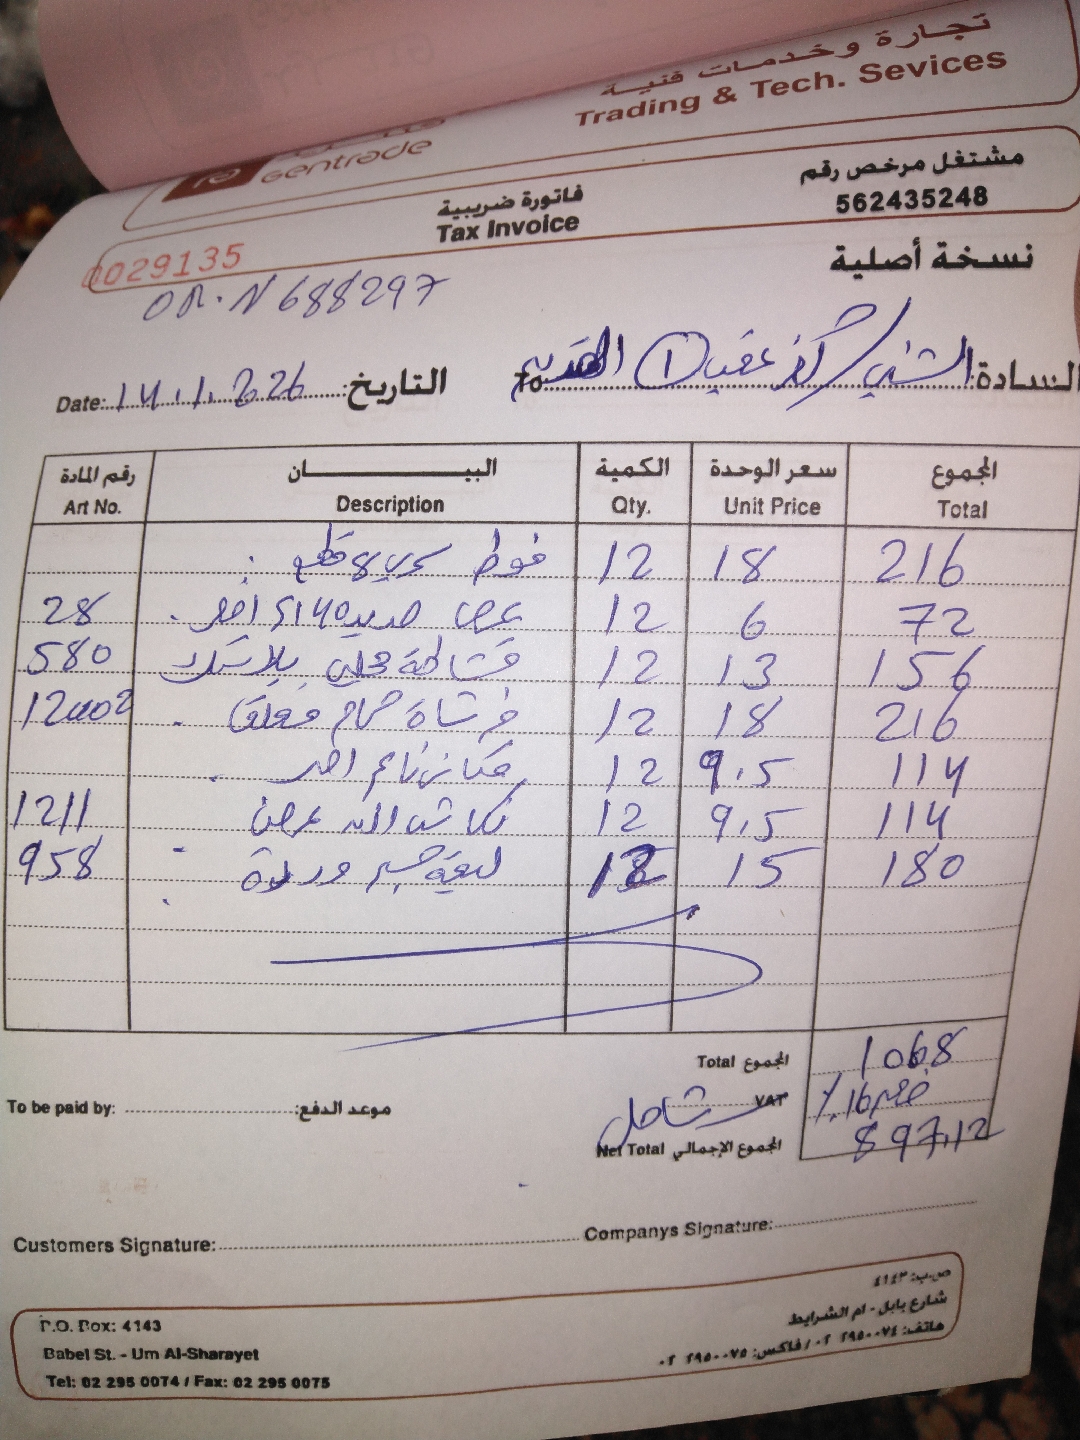 تجارة وخدمات فنية
Trading & Tech. Sevices
Gentrade
مشتغل مرخص رقم
562435248
فاتورة ضريبية
Tax Invoice
0029135
نسخة أصلية
OR.N 688297
السادة: الشني To
التاريخ: 14.1.2026 Date:
رقم المادة البيــــان الكمية سعر الوحدة المجموع
Art No. Description Qty. Unit Price Total
فوط 8 قطع 12 18 216
28 عصا حديد 140 احمر 12 6 72
580 قشاطة مجلي 12 13 156
12002 فرشاة حمام 12 18 216
ناعم احمر 12 9.5 114
1211 12 9.5 114
958 ليفة وردة 12 15 180
Total المجموع 1068
شامل VAT خصم 16٪
Net Total المجموع الإجمالي 897.12
To be paid by: موعد الدفع:
Customers Signature: Companys Signature:
P.O. Box: 4143
Babel St. - Um Al-Sharayet
Tel: 02 295 0074 / Fax: 02 295 0075
ص.ب: ٤١٤٣
شارع بابل - ام الشرايط
هاتف: ٠٢ ٢٩٥٠٠٧٤ / فاكس: ٠٢ ٢٩٥٠٠٧٥